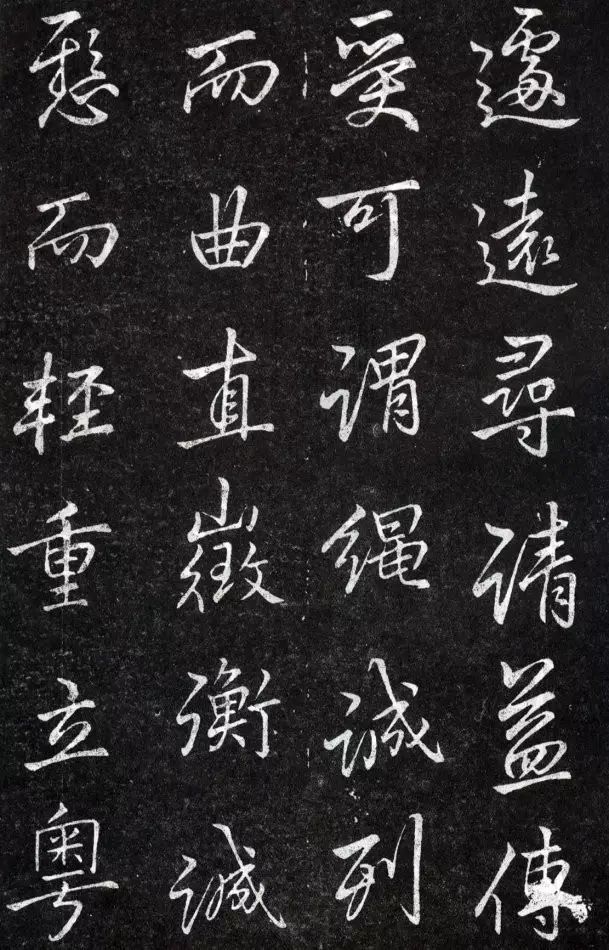 遽遠尋請益傳
受可謂繩誠列
而曲直徵衡誠
懸而輕重立粤